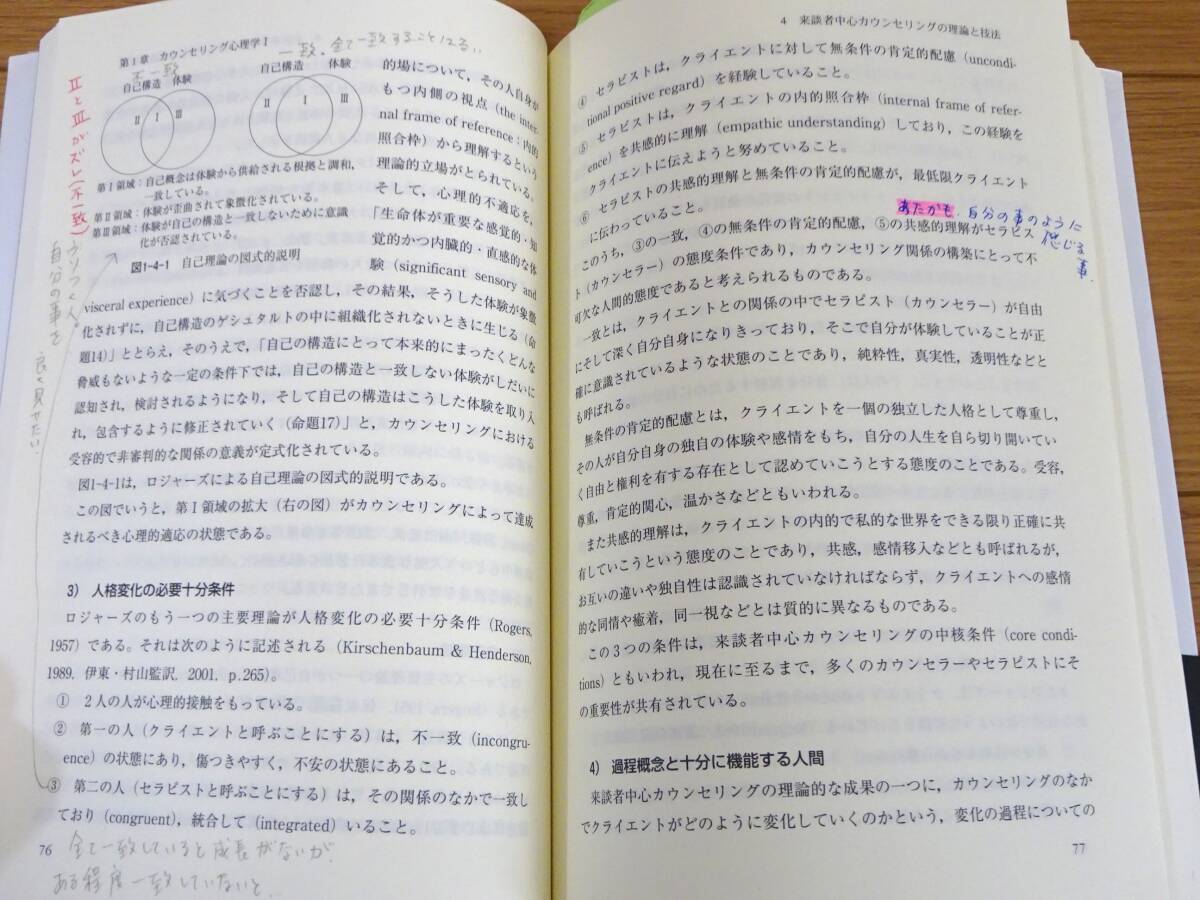 第1章 カウンセリング心理学Ⅰ
一致。全て一致することはない
不一致
自己構造 体験
Ⅱ Ⅰ Ⅲ
自己構造 体験
Ⅱ Ⅰ Ⅲ
第Ⅰ領域:自己概念は体験から供給される根拠と調和,
一致している。
第Ⅱ領域:体験が歪曲されて象徴化されている。
第Ⅲ領域:体験が自己の構造と一致しないために意識
化が否認されている。
図1-4-1 自己理論の図式的説明
ⅡとⅢがズレ(不一致)
ウソつく人。
自分の事を
良く見せたい
的場について,その人自身が
もつ内側の視点(the inter-
nal frame of reference:内的
照合枠)から理解するという
理論的立場がとられている。
そして,心理的不適応を,
「生命体が重要な感覚的・知
覚的かつ内臓的・直感的な体
験(significant sensory and
visceral experience)に気づくことを否認し,その結果,そうした体験が象徴
化されずに,自己構造のゲシュタルトの中に組織化されないときに生じる(命
題14)」ととらえ,そのうえで,「自己の構造にとって本来的にまったくどんな
脅威もないような一定の条件下では,自己の構造と一致しない体験がしだいに
認知され,検討されるようになり,そして自己の構造はこうした体験を取り入
れ,包含するように修正されていく(命題17)」と,カウンセリングにおける
受容的で非審判的な関係の意義が定式化されている。
図1-4-1は,ロジャーズによる自己理論の図式的説明である。
この図でいうと,第Ⅰ領域の拡大(右の図)がカウンセリングによって達成
されるべき心理的適応の状態である。
3) 人格変化の必要十分条件
ロジャーズのもう一つの主要理論が人格変化の必要十分条件(Rogers,
1957)である。それは次のように記述される(Kirschenbaum & Henderson,
1989. 伊東・村山監訳. 2001. p.265)。
① 2人の人が心理的接触をもっている。
② 第一の人(クライエントと呼ぶことにする)は,不一致(incongru-
ence)の状態にあり,傷つきやすく,不安の状態にあること。
③ 第二の人(セラピストと呼ぶことにする)は,その関係のなかで一致し
ており(congruent),統合して(integrated)いること。
76
全て一致していると成長がないが,
ある程度一致していないと、
4 来談者中心カウンセリングの理論と技法
④ セラピストは,クライエントに対して無条件の肯定的配慮(uncondi-
tional positive regard)を経験していること。
⑤ セラピストは,クライエントの内的照合枠(internal frame of refer-
ence)を共感的に理解(empathic understanding)しており,この経験を
クライエントに伝えようと努めていること。
⑥ セラピストの共感的理解と無条件の肯定的配慮が,最低限クライエント
に伝わっていること。
あたかも、自分の事のように
感じる
事、
このうち,③の一致,④の無条件の肯定的配慮,⑤の共感的理解がセラピス
ト(カウンセラー)の態度条件であり,カウンセリング関係の構築にとって不
可欠な人間的態度であると考えられるものである。
一致とは,クライエントとの関係の中でセラピスト(カウンセラー)が自由
にそして深く自分自身になりきっており,そこで自分が体験していることが正
確に意識されているような状態のことであり,純粋性,真実性,透明性などと
も呼ばれる。
無条件の肯定的配慮とは,クライエントを一個の独立した人格として尊重し,
その人が自分自身の独自の体験や感情をもち,自分の人生を自ら切り開いてい
く自由と権利を有する存在として認めていこうとする態度のことである。受容,
尊重,肯定的関心,温かさなどともいわれる。
また共感的理解は,クライエントの内的で私的な世界をできる限り正確に共
有していこうという態度のことであり,共感,感情移入などとも呼ばれるが,
お互いの違いや独自性は認識されていなければならず,クライエントへの感情
的な同情や癒着,同一視などとは質的に異なるものである。
この3つの条件は,来談者中心カウンセリングの中核条件(core condi-
tions)ともいわれ,現在に至るまで,多くのカウンセラーやセラピストにそ
の重要性が共有されている。
4) 過程概念と十分に機能する人間
来談者中心カウンセリングの理論的な成果の一つに,カウンセリングのなか
でクライエントがどのように変化していくのかという,変化の過程についての
77